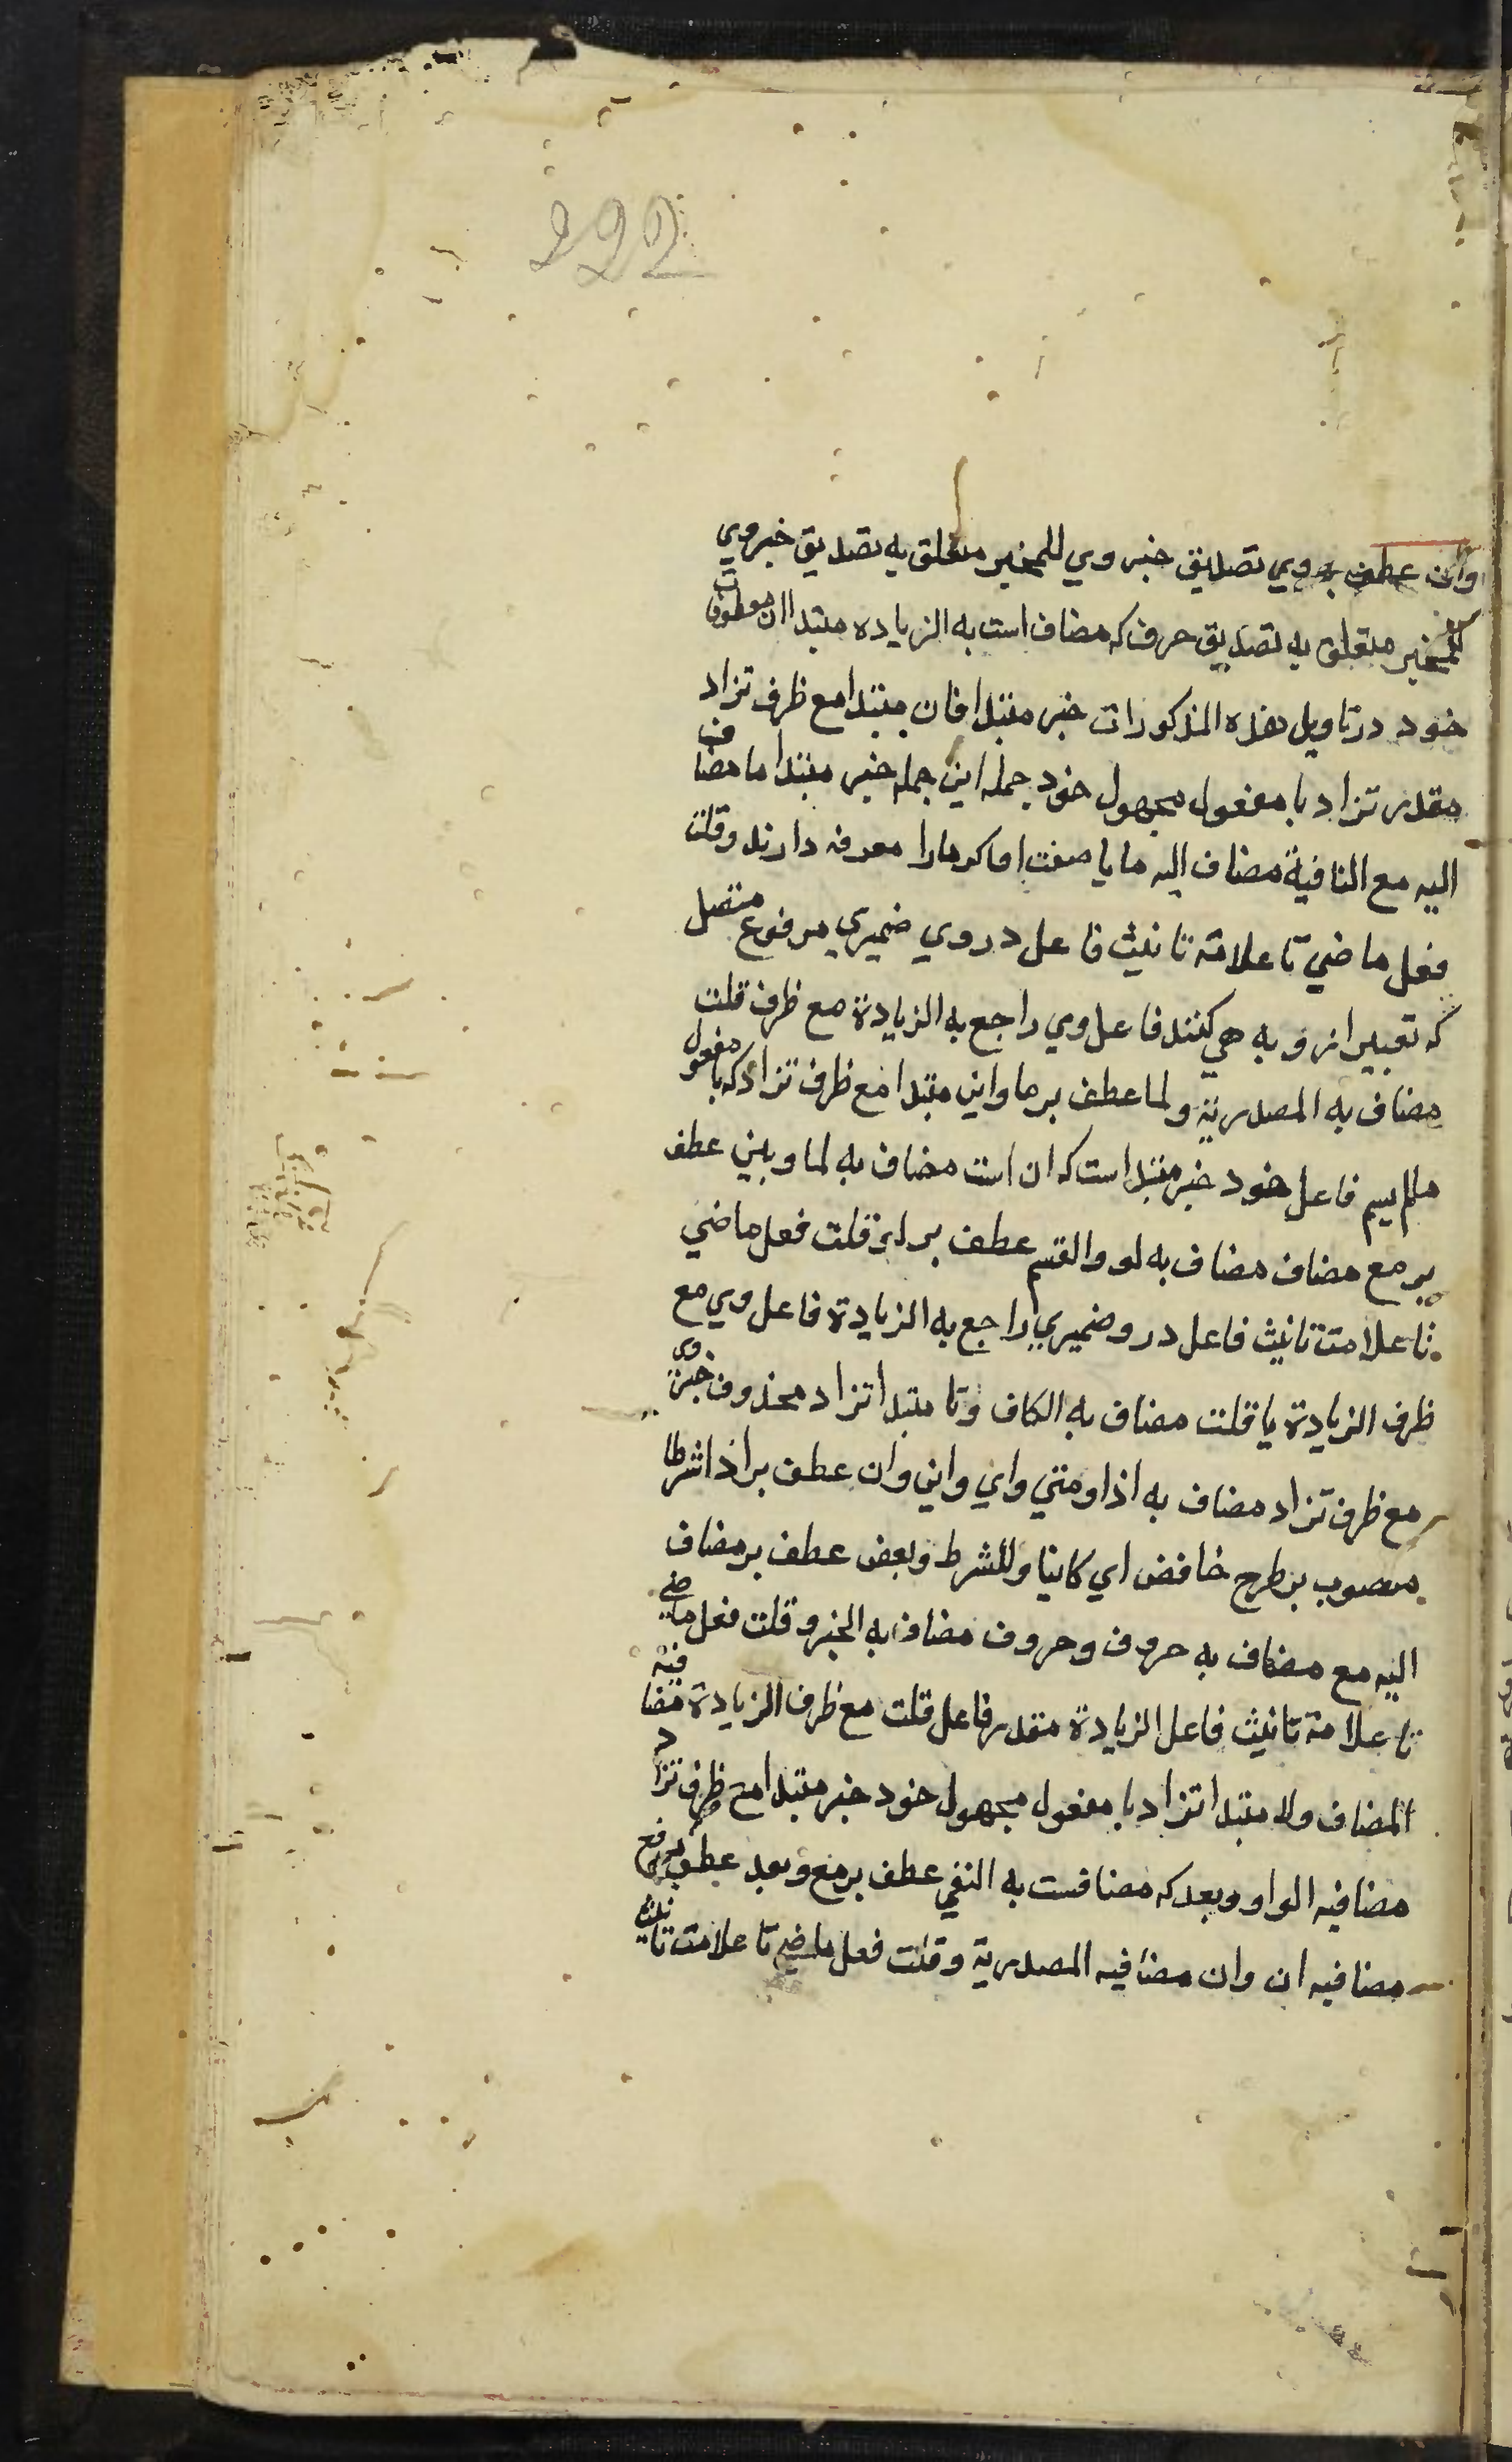 222
وان عطف بر وي تصديق خبر وي للمخبر متعلق به تصديق خبر وي
للمخبر متعلق به تصديق حرف كه مضاف است به الزياده مبتدا ان معطوفات
خود در تاويل هذه المذكورات خبر مبتدا فان مبتدا مع ظرف تزاد
مقدر تزاد با مفعول مجهول خود جمله اين جمله خبر مبتدا ما مضاف
اليه مع النافية مضاف اليه ما يا صفت ما كر ما را معرفه دارند وقلت
فعل ماضي تا علامة تانيث فاعل در وي ضميري مرفوع متصل
كه تعبير از و به هي كنند فاعل وي راجع به الزيادة مع ظرف قلت
مضاف به المصدرية ولما عطف بر ما واين مبتدا مع ظرف تزاد كه با مفعول
ما لم يسم فاعل خود خبر مبتدا است كه ان است مضاف به لما وبين عطف
بر مع مضاف مضاف به لو والقسم عطف بر لو قلت فعل ماضي
تا علامت تانيث فاعل در و ضميري راجع به الزيادة فاعل وي مع
ظرف الزيادة يا قلت مضاف به الكاف وتا مبتدا تزاد محذوف خبر وي
مع ظرف تزاد مضاف به اذا ومتي واي واين وان عطف بر اذا شرطا
منصوب بر طرح خافض اي كاينا وللشرط وبعض عطف بر مضاف
اليه مع مضاف به حروف وحروف مضاف به الجر وقلت فعل ماضي
تا علامة تانيث فاعل الزيادة مقدر فاعل قلت مع ظرف الزيادة مضافيه
المضاف ولا مبتدا تزاد با مفعول مجهول خود خبر مبتدا مع ظرف تزاد
مضافيه الواو وبعد كه مضافست به النفي عطف بر مع وبعد عطف بر مع
مضافيه ان وان مضافيه المصدرية وقلت فعل ماضي تا علامت تانيث